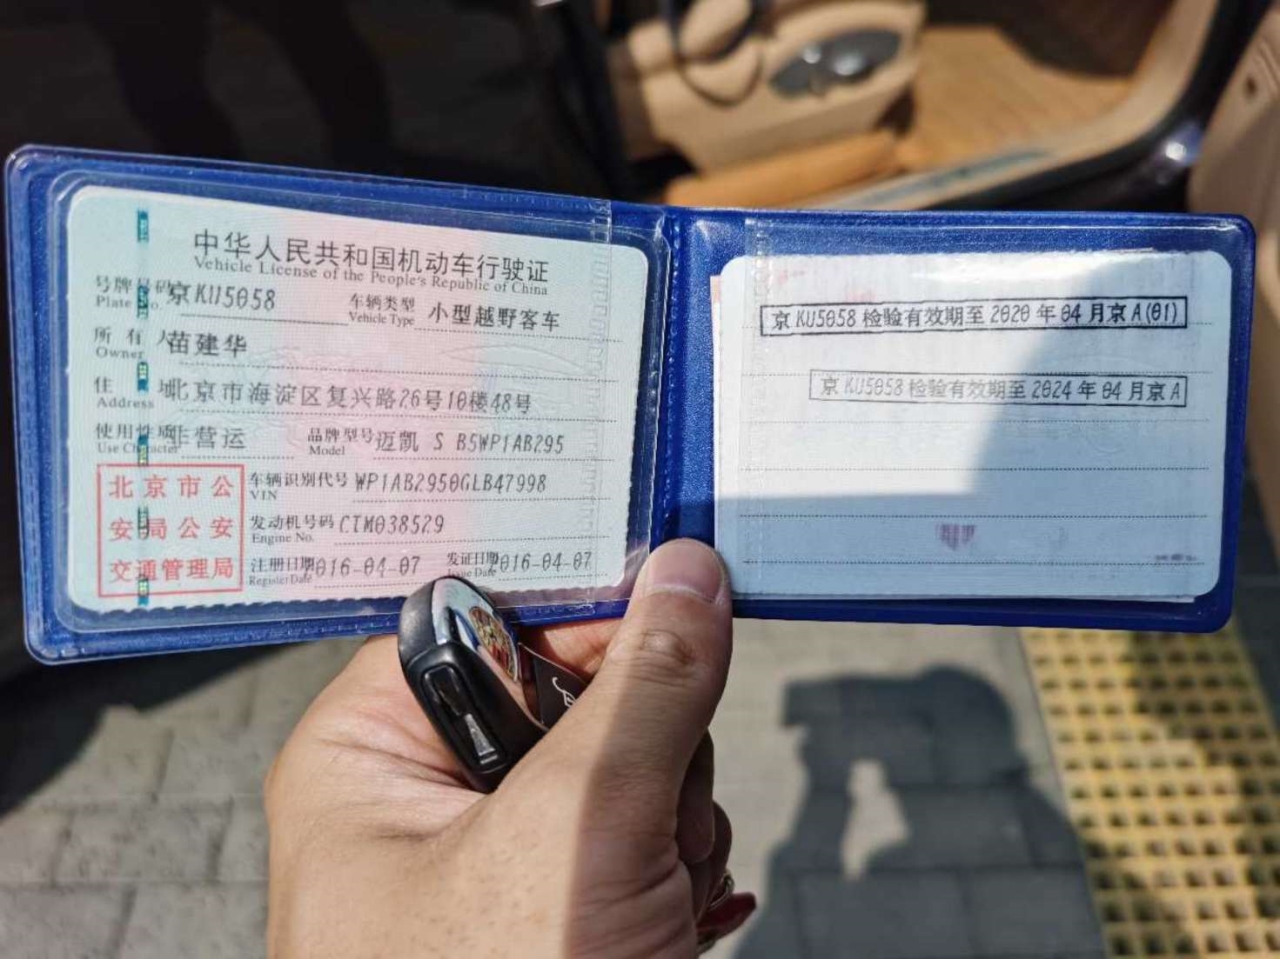 中华人民共和国机动车行驶证
Vehicle License of the People's Republic of China
号牌号码 京KU5058 车辆类型 小型越野客车
Plate No. Vehicle Type
所有人 苗建华
Owner
住址 北京市海淀区复兴路26号10楼48号
Address
使用性质 非营运 品牌型号 迈凯 S B5WP1AB295
Use Character Model
车辆识别代号 WP1AB2950GLB47998
VIN
发动机号码 CTM038529
Engine No.
注册日期 2016-04-07 发证日期 2016-04-07
Register Date Issue Date
北京市公
安局公安
交通管理局
京KU5058检验有效期至2020年04月京A(01)
京KU5058检验有效期至2024年04月京A